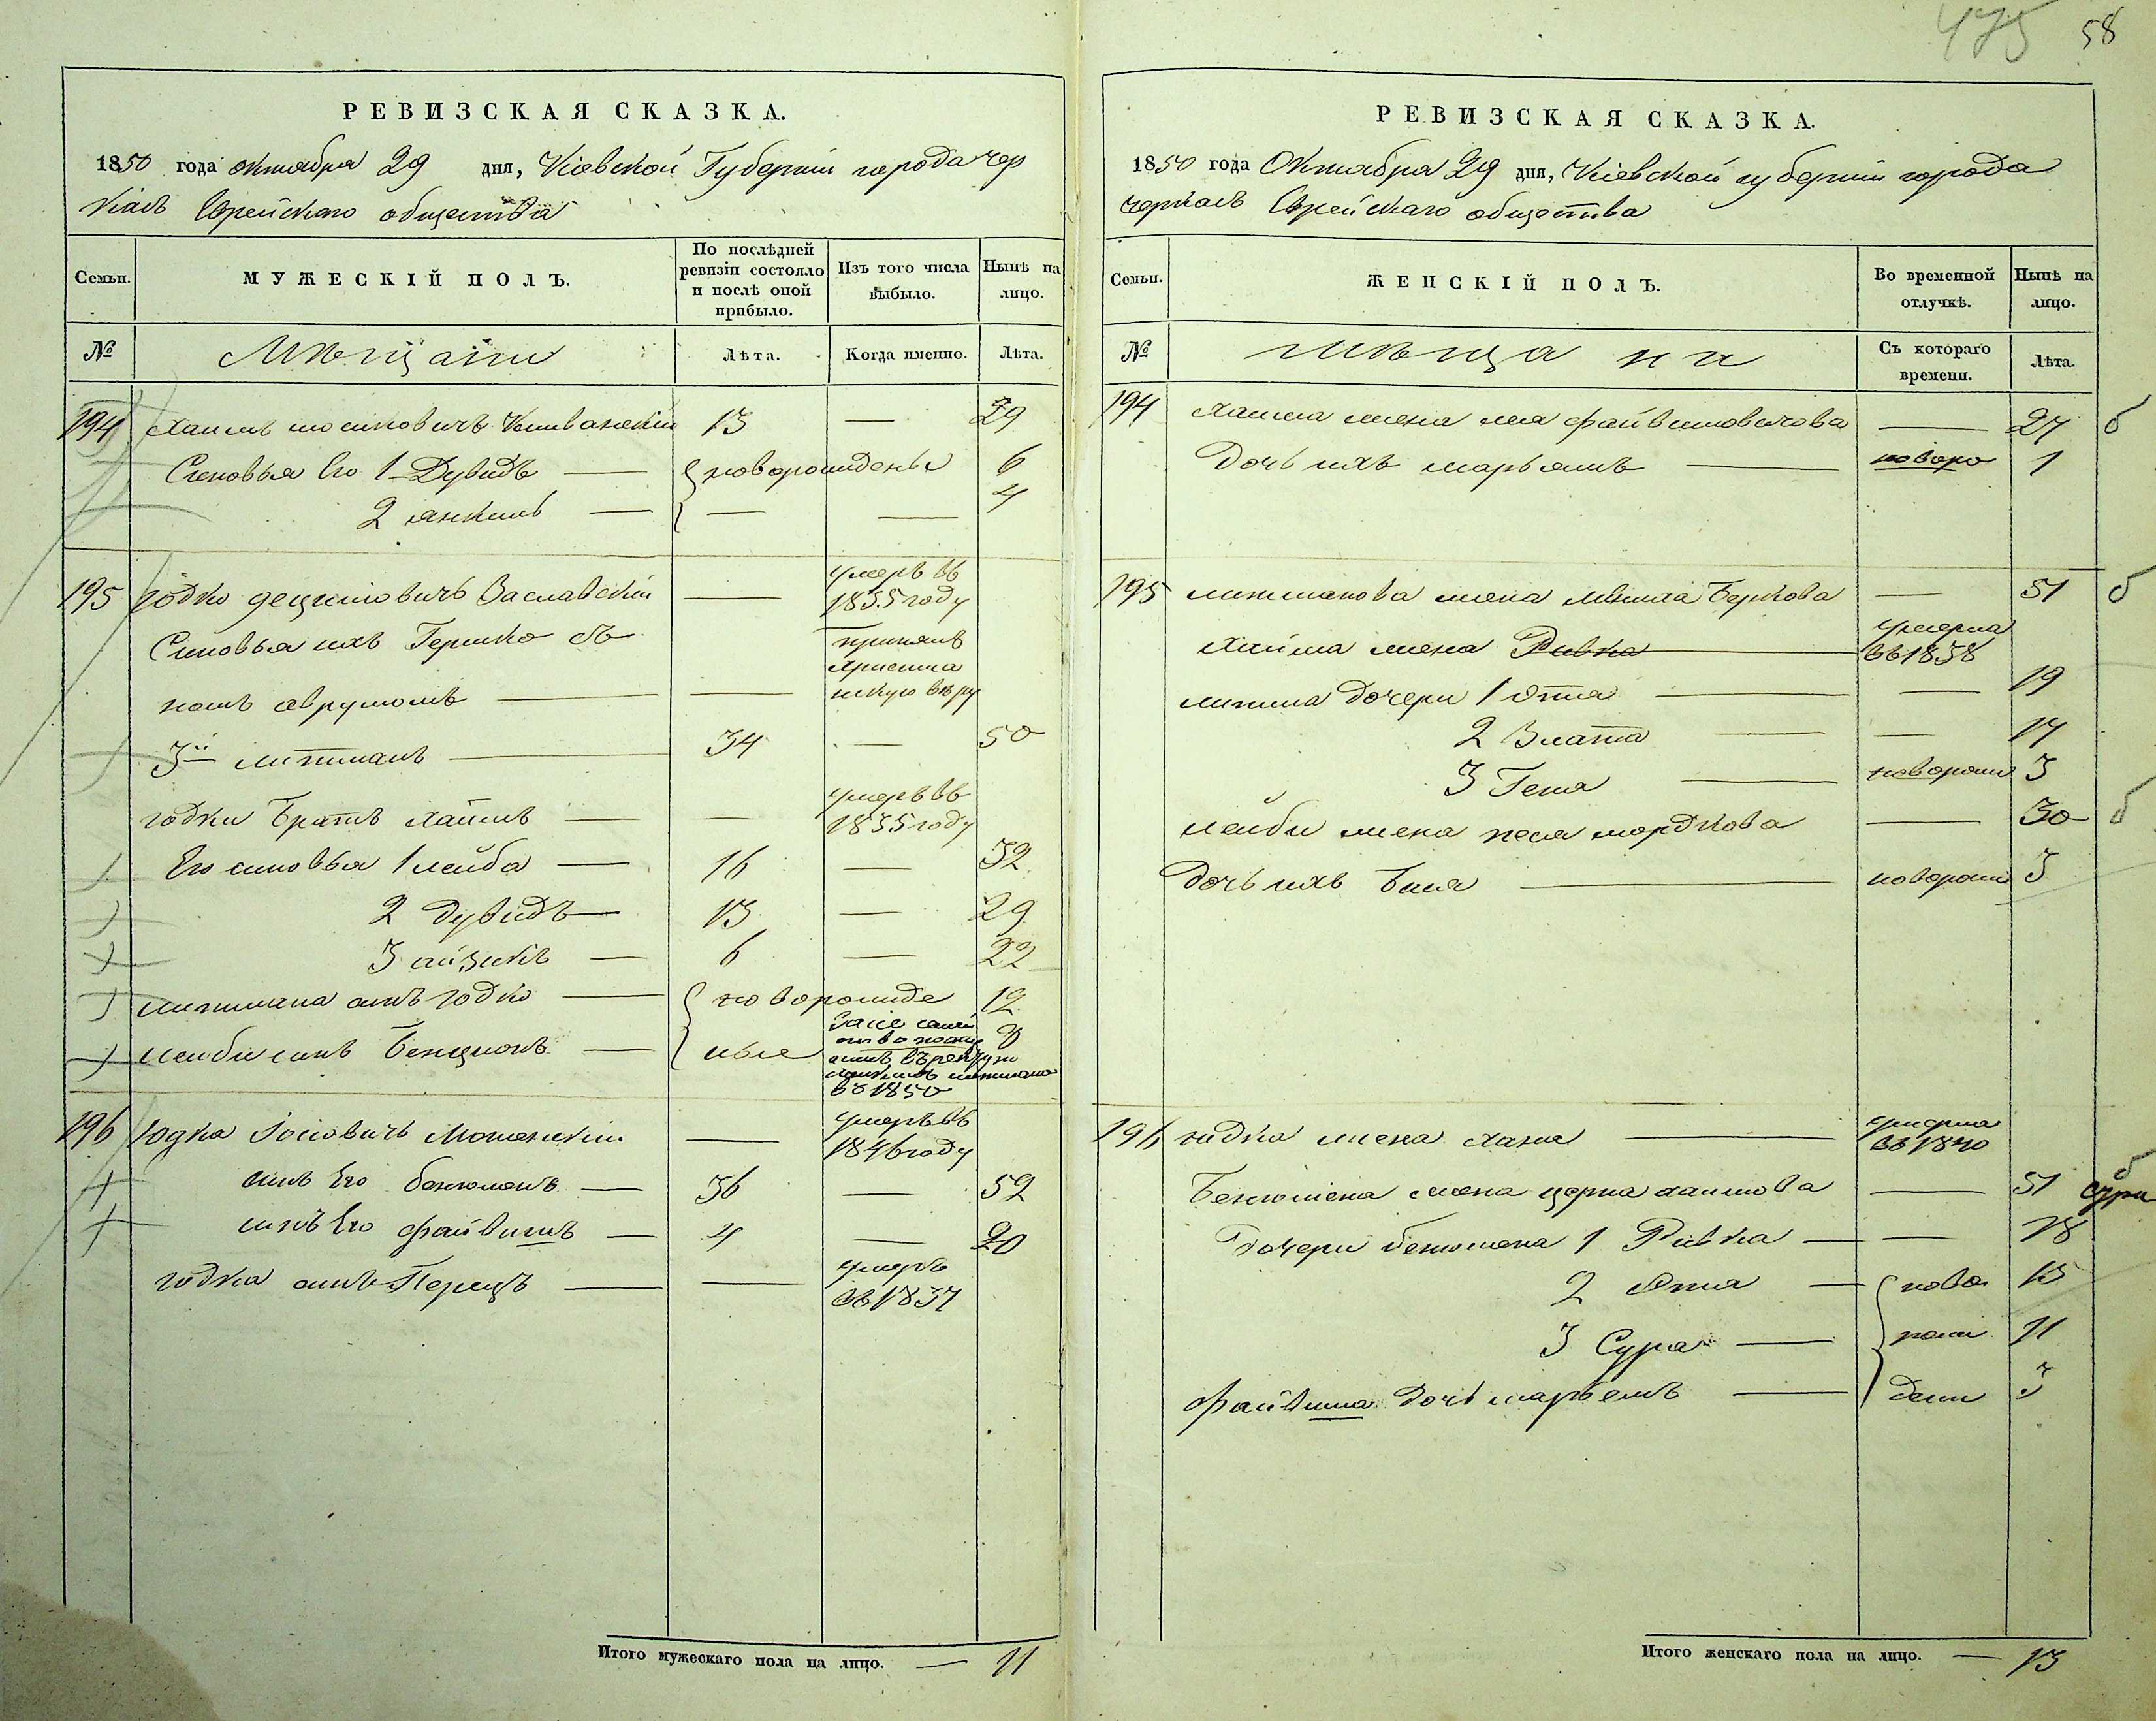 475 58
РЕВИЗСКАЯ СКАЗКА.
1850 года октября 29 дня, Кіевской Губерніи города Чер
касъ Еврейскаго общества
Семьи. МУЖЕСКІЙ ПОЛЪ. По послѣдней ревизіи состояло и послѣ оной прибыло. Изъ того числа выбыло. Нынѣ на лицо.
№ Мѣщани Лѣта. Когда именно. Лѣта.
194 Хаимъ 13 — 29
Сыновья Его 1 Дувидъ — новорожденые 6
2 Янкель — — — 4
195 Юдко Заславский — умеръ въ 1835 году
Сыновья ихъ Гершко съ принялъ
номъ Аврумомъ — — христиа нскую вѣру
3й Литманъ — 34 — 50
Юдки братъ Хаимъ — — умеръ въ 1835 году
Его сыновья 1 Лейба — 16 — 32
2 Дувидъ — 13 — 29
3 Айзикъ — 6 — 22
Литмана сынъ Юдко — новорожде 12
Лейби сынъ Бенционъ — ные 8
въ 1850
196 Юдка Іосіовичъ — умеръ въ 1846 году
сынъ Его Бенюменъ — 36 — 52
сынъ Его Файвишъ — 4 — 20
Юдка сынъ Перецъ — — умеръ въ 1837
Итого мужескаго пола на лицо. — 11
РЕВИЗСКАЯ СКАЗКА.
1850 года Октября 29 дня, Кіевской губерніи города
Черкасъ Еврейскаго общества
Семьи. ЖЕНСКІЙ ПОЛЪ. Во временной отлучкѣ. Нынѣ на лицо.
№ мѣща н и Съ котораго времени. Лѣта.
194 Хаима жена Файвишовичова — 27 б
Дочь ихъ Марьямъ — новоро 1
195 Литманова жена Беркова — 51 б
Хаима жена Ривка умерла въ 1838
Литмана дочери 1 — — 19
2 Злата — — 17
3 Геня — новорож 3
Лейби жена Песя Мордкова — 30 б
Дочь ихъ Бася — новорож 3
196 Юдка жена Хана — умерла въ 1840
Бенюмена жена Церна Хаимова — 51 б
Дочери Бенюмена 1 Ривка — — 18
2 — ново 15
3 Сура — рож 11
Файвиша дочь Марьемъ — дени 3
Итого женскаго пола на лицо. — 13